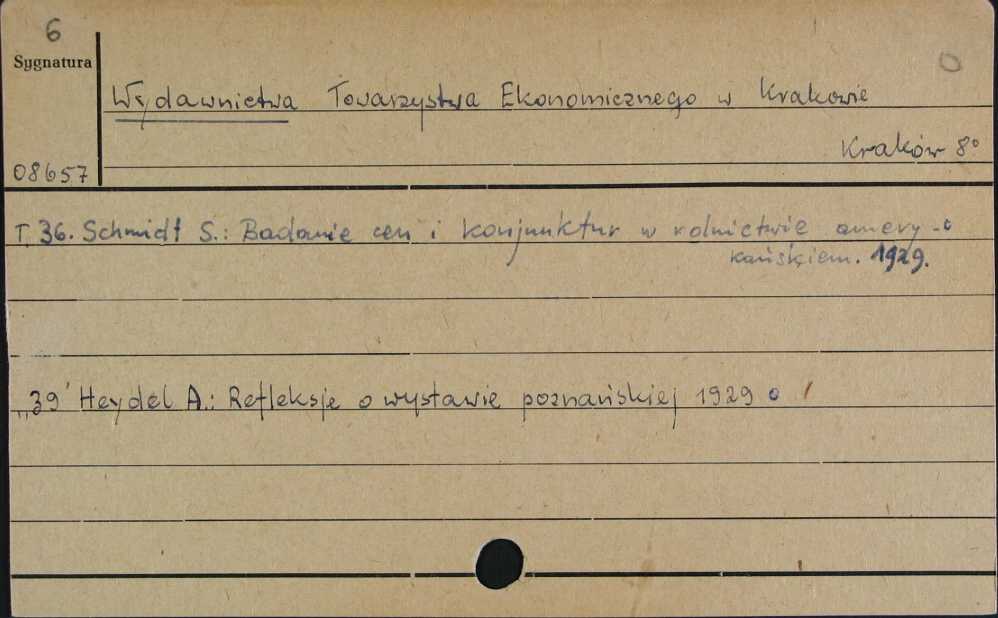 6
Sygnatura
Wydawnictwa Towarzystwa Ekonomicznego w Krakowie
Kraków 8°
08657
T. 36. Schmidt S.: Badanie cen i konjunktur w rolnictwie amery-
kańskiem. 1929.
„39 Heydel A.: Refleksje o wystawie poznańskiej 1929